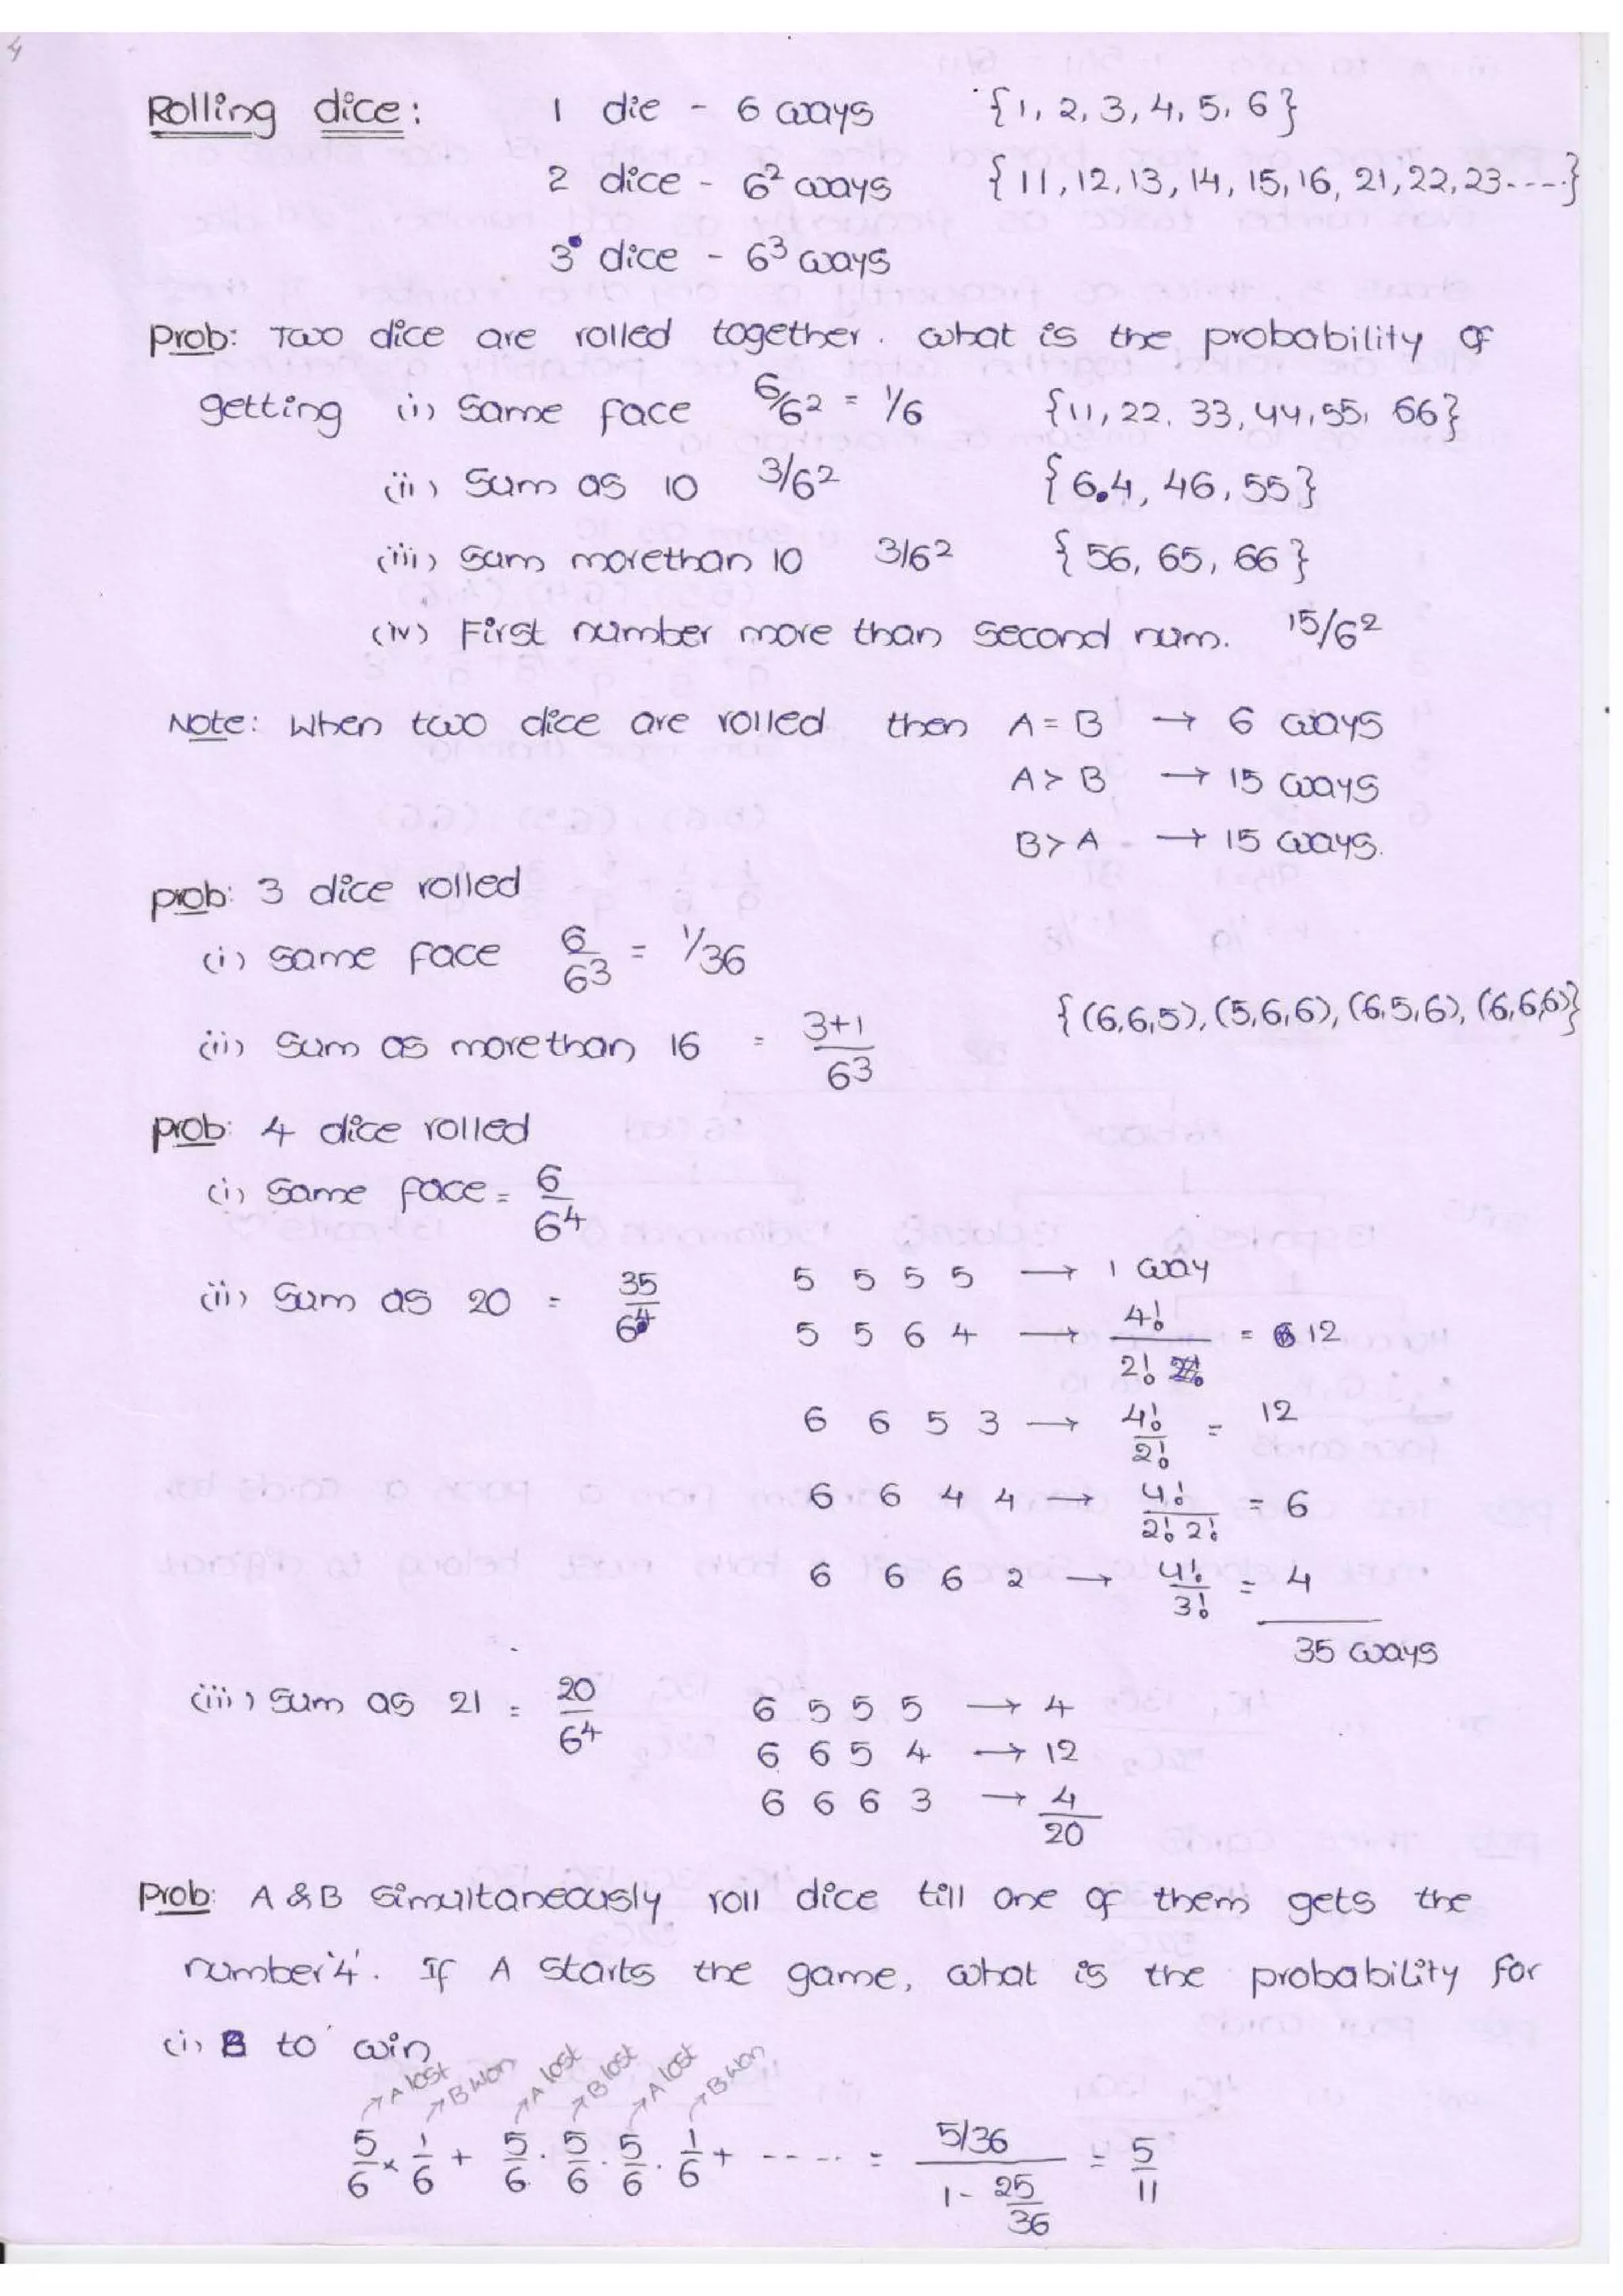 4
Rolling dice: 1 die - 6 ways {1, 2, 3, 4, 5, 6}
2 dice - 6² ways {11, 12, 13, 14, 15, 16, 21, 22, 23 ----}
3 dice - 6³ ways
Prob: Two dice are rolled together. What is the probability of
getting (i) Same face 6/6² = 1/6 {11, 22, 33, 44, 55, 66}
(ii) Sum as 10 3/6² {6,4, 46, 55}
(iii) Sum morethan 10 3/6² {56, 65, 66}
(iv) First number more than second num. 15/6²
Note: When two dice are rolled then A = B → 6 ways
A > B → 15 ways
B > A → 15 ways.
prob: 3 dice rolled
(i) same face 6/6³ = 1/36
{(6,6,5), (5,6,6), (6,5,6), (6,6,6)}
(ii) Sum as morethan 16 = (3+1)/6³
prob: 4 dice rolled
(i) Same face = 6/6⁴
(ii) Sum as 20 = 35/6⁴ 5 5 5 5 → 1 way
5 5 6 4 → 4!/2! = 12
6 6 5 3 → 4!/2! = 12
6 6 4 4 → 4!/(2! 2!) = 6
6 6 6 2 → 4!/3! = 4
35 ways
(iii) Sum as 21 = 20/6⁴ 6 5 5 5 → 4
6 6 5 4 → 12
6 6 6 3 → 4
20
Prob: A & B Simultaneously roll dice till one of them gets the
number '4'. If A starts the game, what is the probability for
(i) B to win
→ A lost → B won → A lost → B lost → A lost → B won
5/6 × 1/6 + 5/6 . 5/6 . 5/6 . 1/6 + ----- = (5/36)/(1 - 25/36) = 5/11